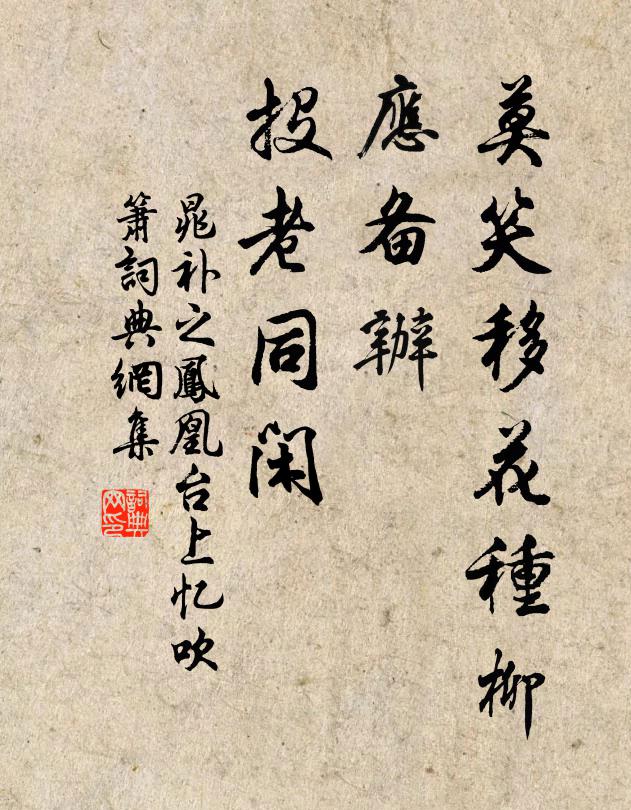 莫笑移花種柳
應备辦
投老同閑
晁补之鳳凰台上忆吹
箫詞典網集
詞典
网印